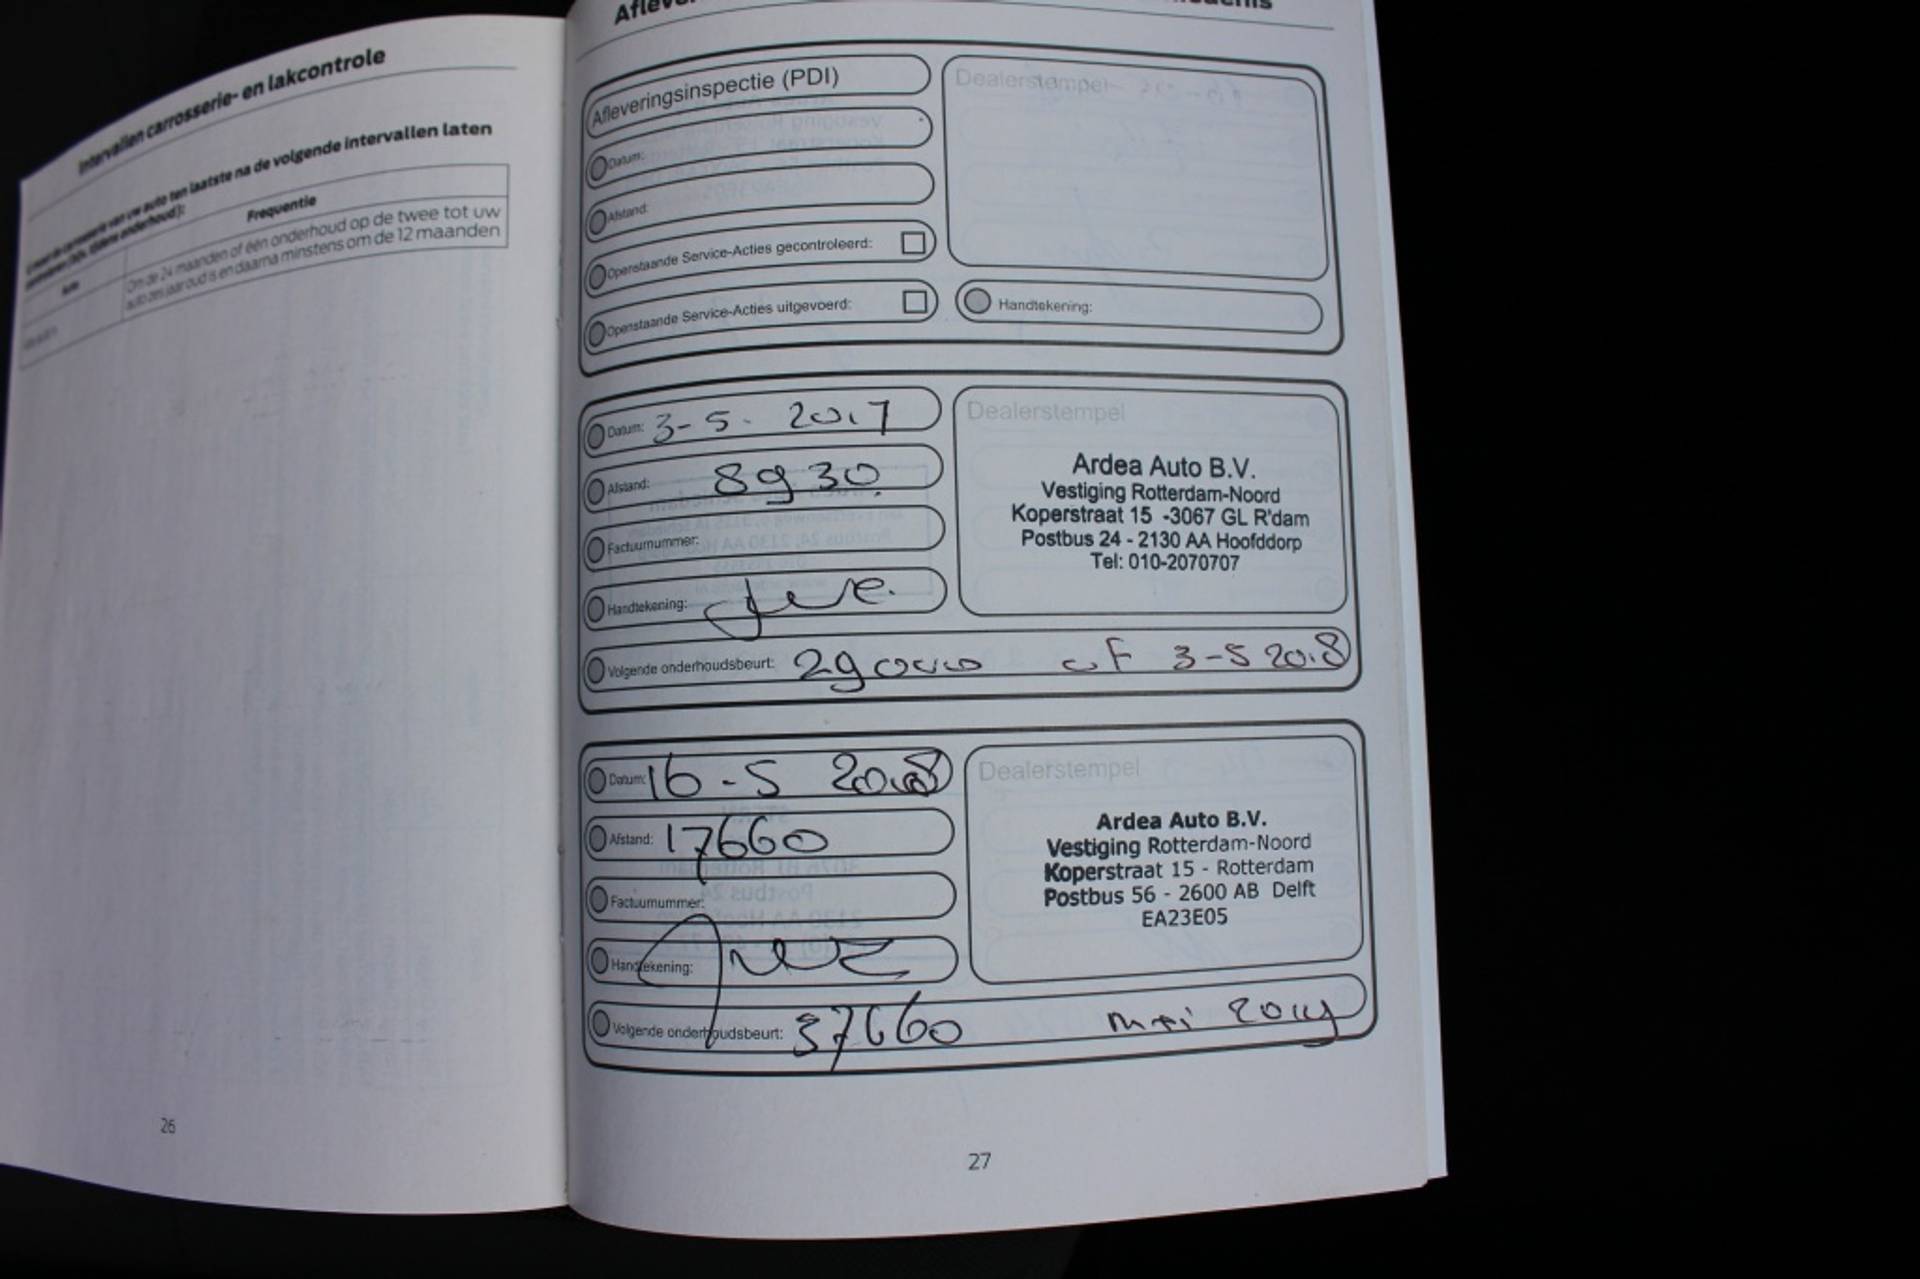 Intervallen carrosserie- en lakcontrole
na de volgende intervallen laten
Frequentie
Om de 24 maanden of één onderhoud op de twee tot uw
auto zes jaar oud is en daarna minstens om de 12 maanden
26
Afleveringsinspectie (PDI)
Datum:
Afstand:
Openstaande Service-Acties gecontroleerd:
Openstaande Service-Acties uitgevoerd:
Dealerstempel
Handtekening:
Datum: 3-5-2017
Afstand: 8930
Factuurnummer:
Handtekening:
Dealerstempel
Ardea Auto B.V.
Vestiging Rotterdam-Noord
Koperstraat 15 -3067 GL R'dam
Postbus 24 - 2130 AA Hoofddorp
Tel: 010-2070707
Volgende onderhoudsbeurt: 29000 of 3-5 2018
Datum: 16-5 2018
Afstand: 17660
Factuurnummer:
Handtekening:
Dealerstempel
Ardea Auto B.V.
Vestiging Rotterdam-Noord
Koperstraat 15 - Rotterdam
Postbus 56 - 2600 AB Delft
EA23E05
Volgende onderhoudsbeurt: 37660 mei 2019
27